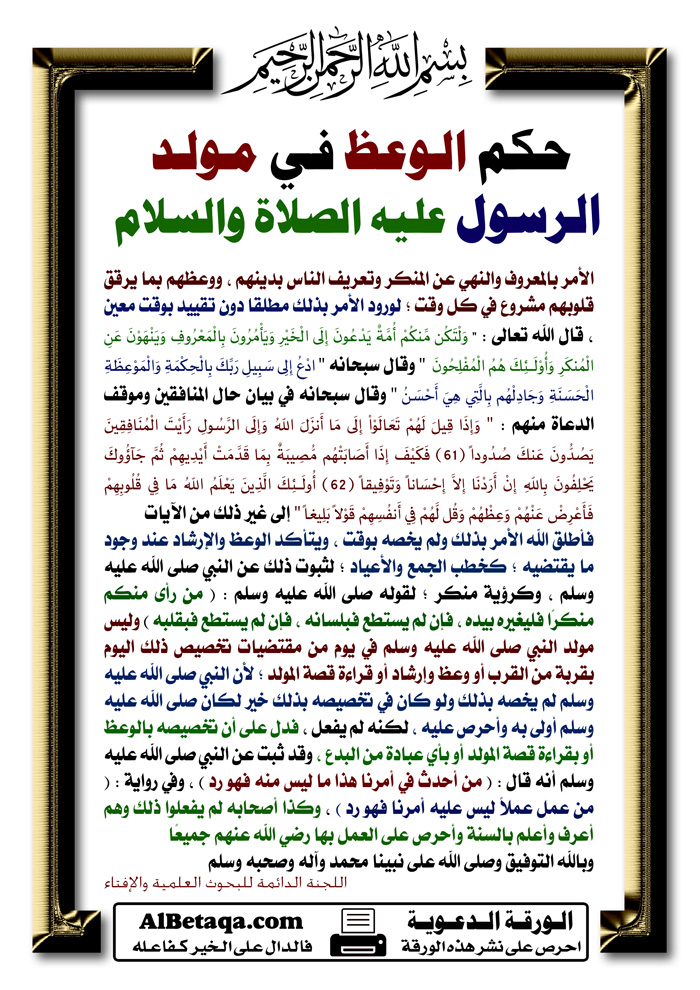 بسم الله الرحمن الرحيم
حكم الوعظ في مولد
الرسول عليه الصلاة والسلام
الأمر بالمعروف والنهي عن المنكر وتعريف الناس بدينهم ، ووعظهم بما يرقق
قلوبهم مشروع في كل وقت ؛ لورود الأمر بذلك مطلقا دون تقييد بوقت معين
، قال الله تعالى : " وَلْتَكُن مِّنكُمْ أُمَّةٌ يَدْعُونَ إِلَى الْخَيْرِ وَيَأْمُرُونَ بِالْمَعْرُوفِ وَيَنْهَوْنَ عَنِ
الْمُنكَرِ وَأُوْلَـئِكَ هُمُ الْمُفْلِحُونَ " وقال سبحانه " ادْعُ إِلى سَبِيلِ رَبِّكَ بِالْحِكْمَةِ وَالْمَوْعِظَةِ
الْحَسَنَةِ وَجَادِلْهُم بِالَّتِي هِيَ أَحْسَنُ " وقال سبحانه في بيان حال المنافقين وموقف
الدعاة منهم : " وَإِذَا قِيلَ لَهُمْ تَعَالَوْاْ إِلَى مَا أَنزَلَ اللهُ وَإِلَى الرَّسُولِ رَأَيْتَ الْمُنَافِقِينَ
يَصُدُّونَ عَنكَ صُدُوداً (61) فَكَيْفَ إِذَا أَصَابَتْهُم مُّصِيبَةٌ بِمَا قَدَّمَتْ أَيْدِيهِمْ ثُمَّ جَآؤُوكَ
يَحْلِفُونَ بِاللهِ إِنْ أَرَدْنَا إِلاَّ إِحْسَاناً وَتَوْفِيقاً (62) أُولَـئِكَ الَّذِينَ يَعْلَمُ اللهُ مَا فِي قُلُوبِهِمْ
فَأَعْرِضْ عَنْهُمْ وَعِظْهُمْ وَقُل لَّهُمْ فِي أَنفُسِهِمْ قَوْلاً بَلِيغاً " إلى غير ذلك من الآيات
فأطلق الله الأمر بذلك ولم يخصه بوقت ، ويتأكد الوعظ والإرشاد عند وجود
ما يقتضيه ؛ كخطب الجمع والأعياد ؛ لثبوت ذلك عن النبي صلى الله عليه
وسلم ، وكرؤية منكر ؛ لقوله صلى الله عليه وسلم : ( من رأى منكم
منكرًا فليغيره بيده ، فإن لم يستطع فبلسانه ، فإن لم يستطع فبقلبه ) وليس
مولد النبي صلى الله عليه وسلم في يوم من مقتضيات تخصيص ذلك اليوم
بقربة من القرب أو وعظ وإرشاد أو قراءة قصة المولد ؛ لأن النبي صلى الله عليه
وسلم لم يخصه بذلك ولو كان في تخصيصه بذلك خير لكان صلى الله عليه
وسلم أولى به وأحرص عليه ، لكنه لم يفعل ، فدل على أن تخصيصه بالوعظ
أو بقراءة قصة المولد أو بأي عبادة من البدع ، وقد ثبت عن النبي صلى الله عليه
وسلم أنه قال : ( من أحدث في أمرنا هذا ما ليس منه فهو رد ) ، وفي رواية : (
من عمل عملاً ليس عليه أمرنا فهو رد ) ، وكذا أصحابه لم يفعلوا ذلك وهم
أعرف وأعلم بالسنة وأحرص على العمل بها رضي الله عنهم جميعًا
وبالله التوفيق وصلى الله على نبينا محمد وآله وصحبه وسلم
اللجنة الدائمة للبحوث العلمية والإفتاء
الورقة الدعوية
احرص على نشر هذه الورقة
AlBetaqa.com
فالدال على الخير كفاعله